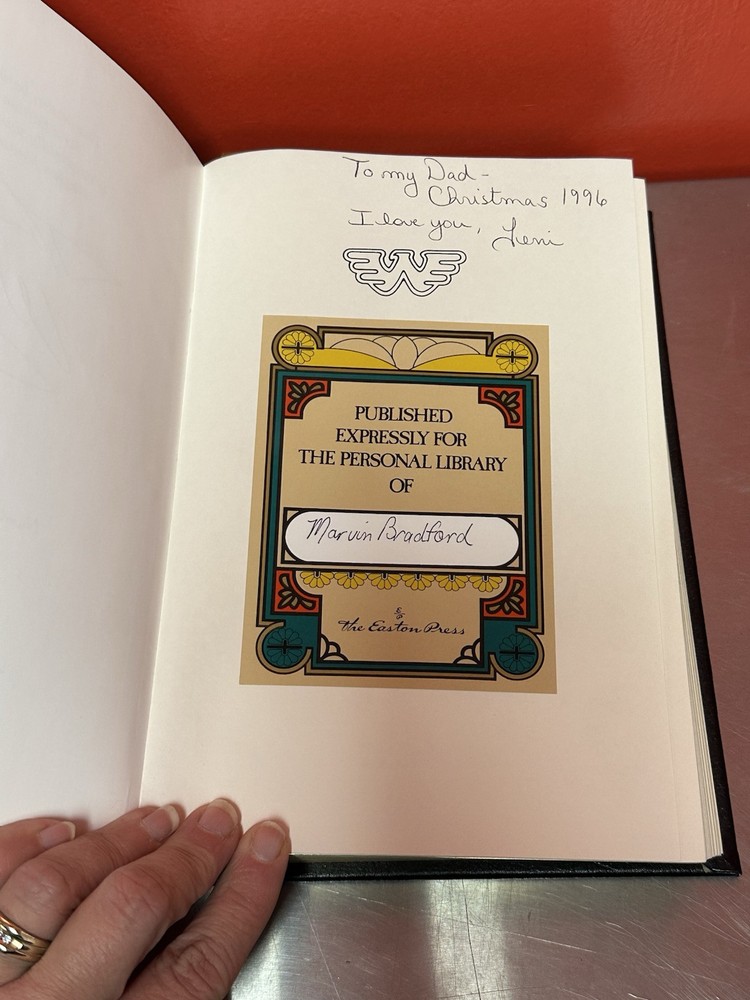 To my Dad -
Christmas 1996
I love you,
PUBLISHED
EXPRESSLY FOR
THE PERSONAL LIBRARY
OF
Marvin Bradford
the Easton Press